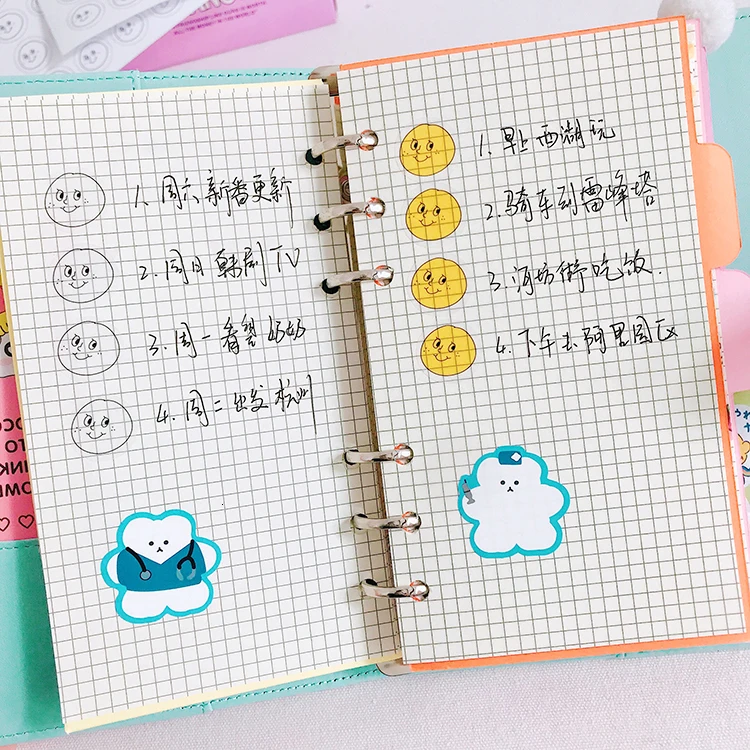 1. 周六新番更新
2. 周日韩剧TV
3. 周一看望奶奶
4. 周二出发杭州
1. 早上西湖玩
2. 骑车到雷峰塔
3. 河坊街吃饭.
4. 下午去阿里园区